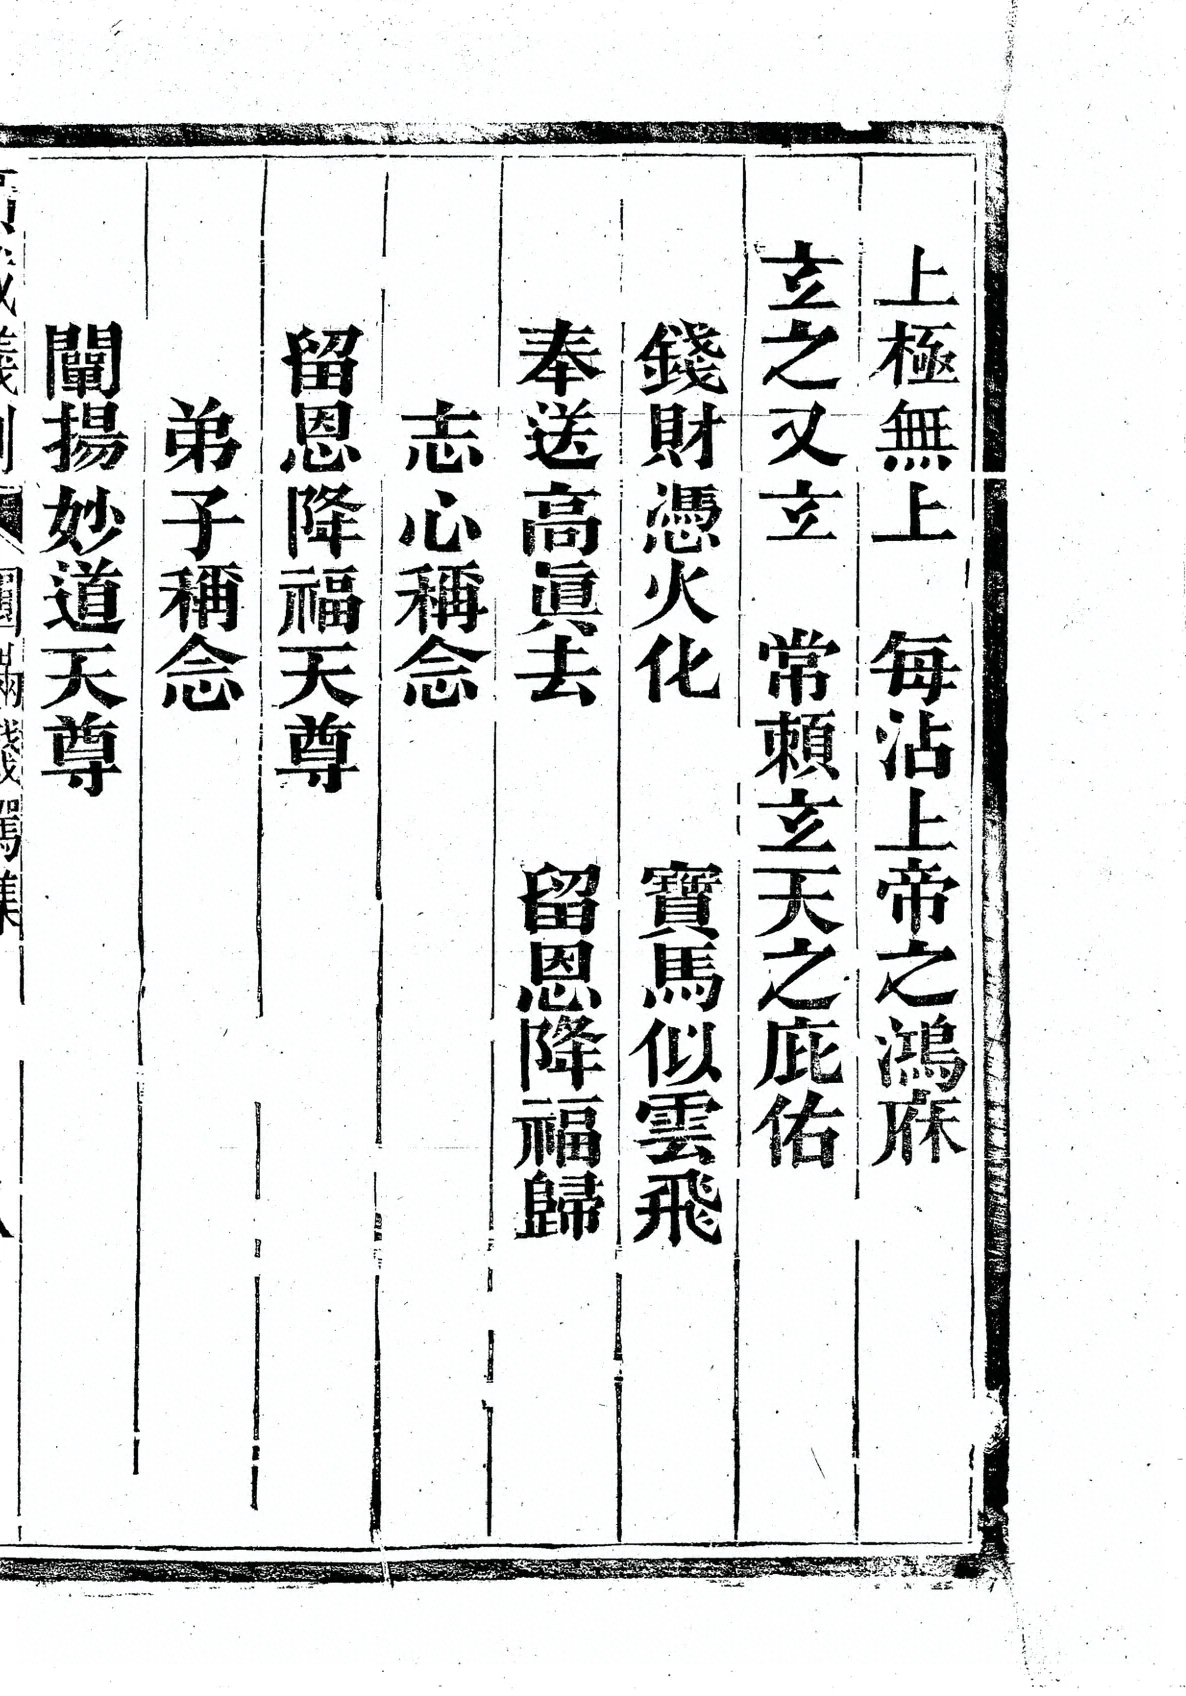 上極無上　每沾上帝之鴻庥
玄之又玄　常賴玄天之庇佑
錢財憑火化　寶馬似雲飛
奉送高眞去　留恩降福歸
志心稱念
留恩降福天尊
弟子稱念
闡揚妙道天尊
廣成儀制　圓滿餞駕集　八